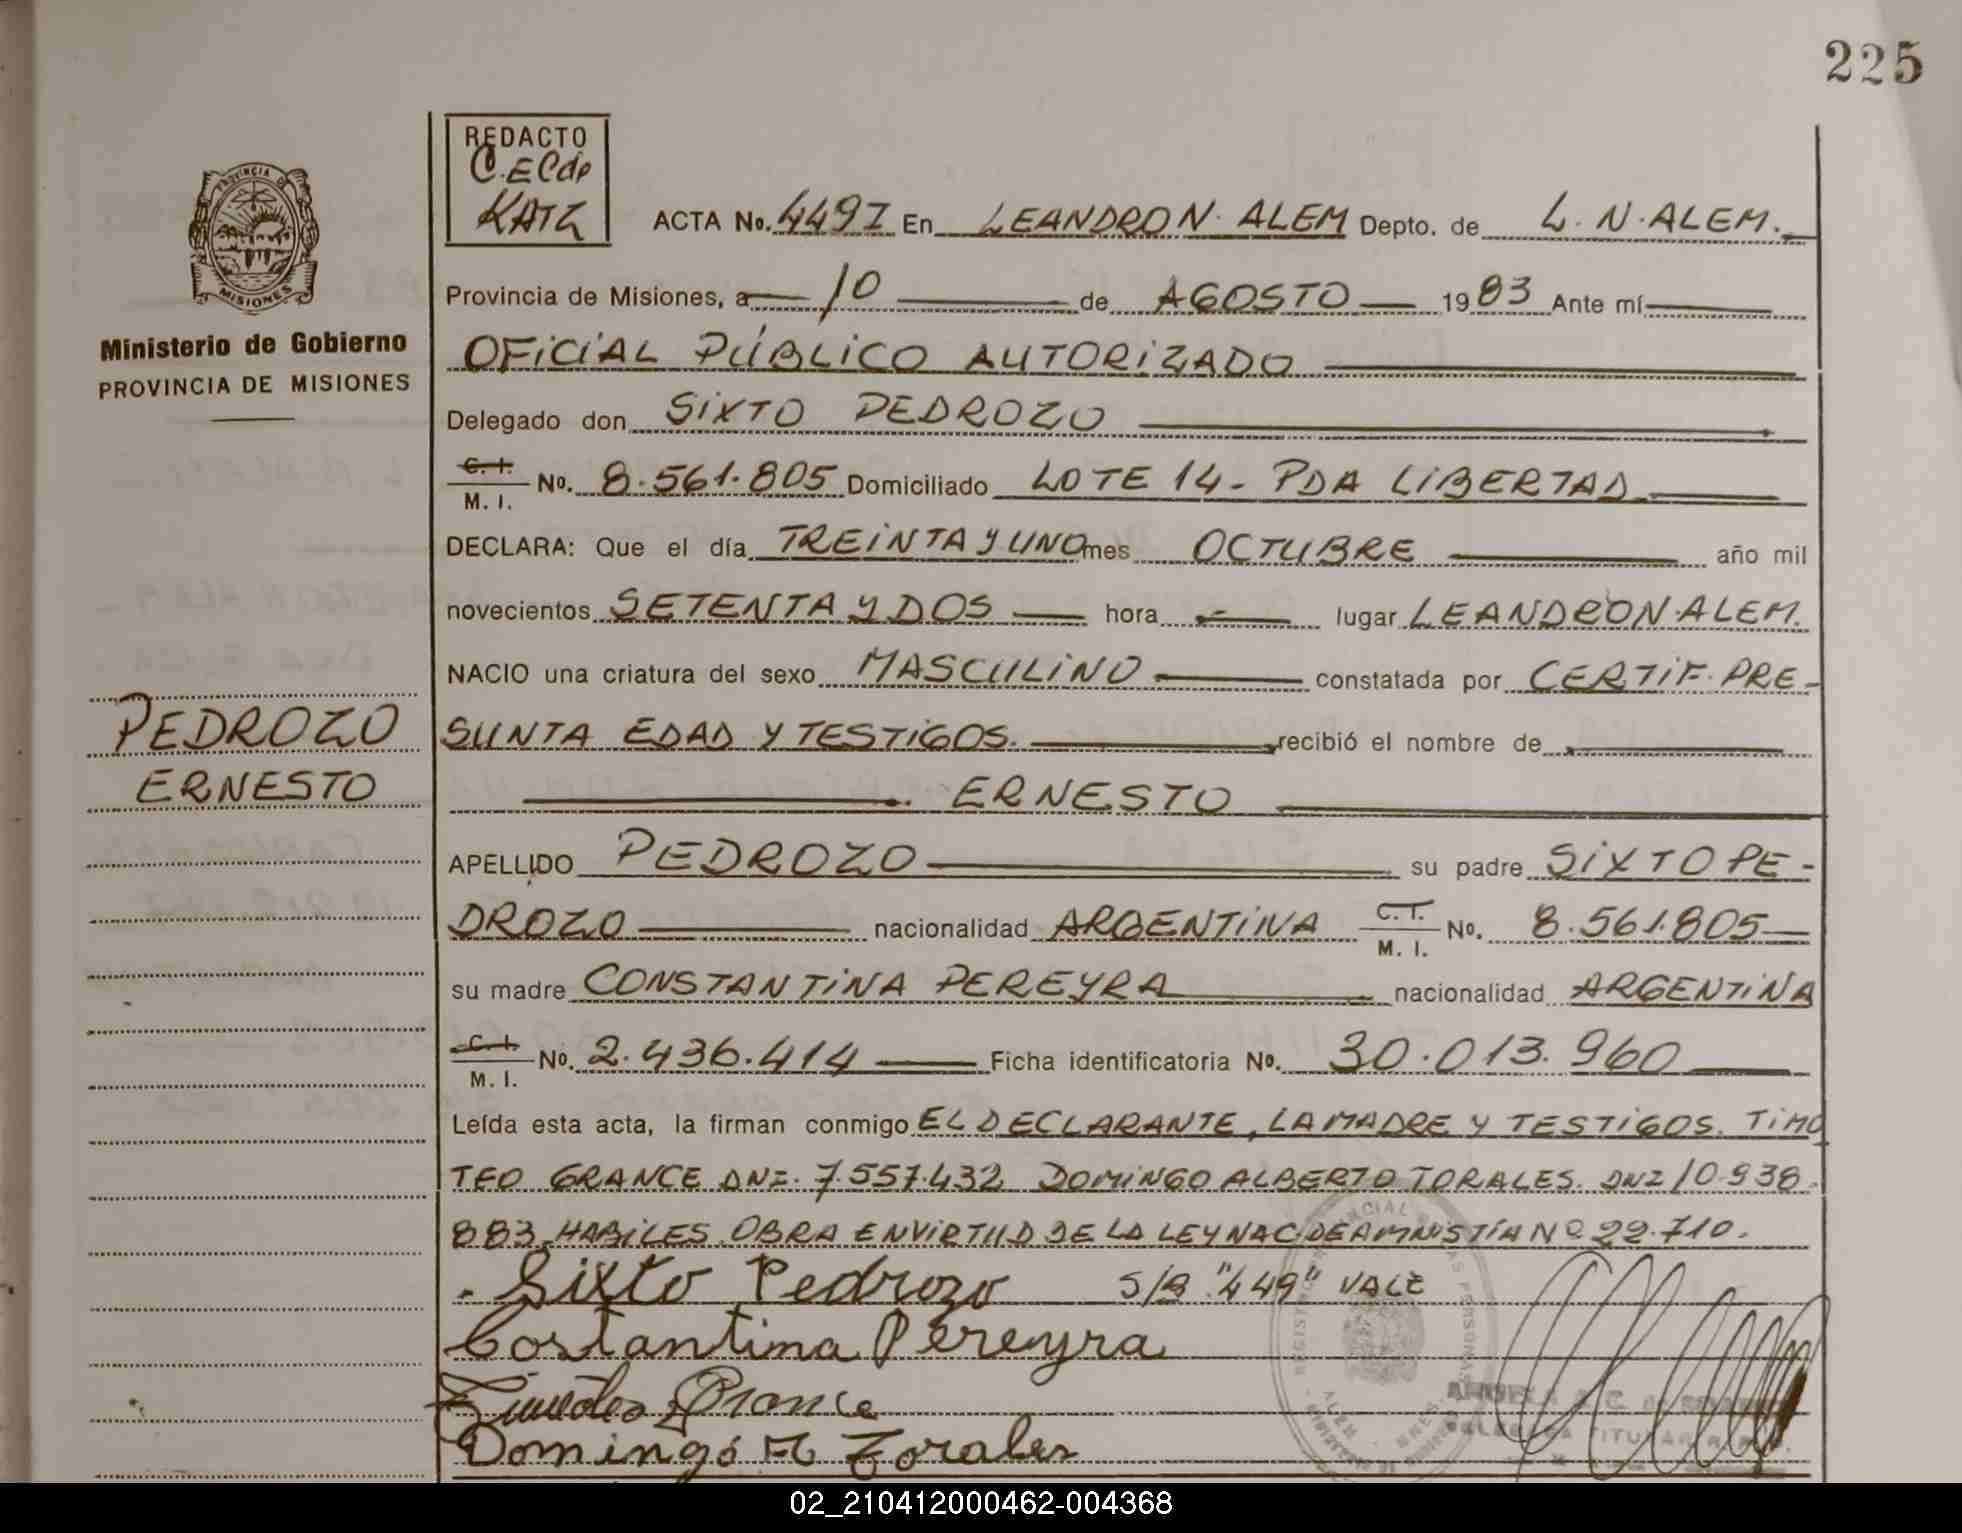 225
REDACTO
C. E C de
KATZ
PROVINCIA DE
MISIONES
Ministerio de Gobierno
PROVINCIA DE MISIONES
ACTA No. 4497 En LEANDRO N. ALEM Depto. de L. N. ALEM.
Provincia de Misiones, a 10 de AGOSTO 1983 Ante mí
OFICIAL PÚBLICO AUTORIZADO
Delegado don SIXTO PEDROZO
C. I. / M. I. No. 8.561.805 Domiciliado LOTE 14 - PDA LIBERTAD
DECLARA: Que el día TREINTA Y UNO mes OCTUBRE año mil
novecientos SETENTA Y DOS hora lugar LEANDRO N. ALEM.
NACIO una criatura del sexo MASCULINO constatada por CERTIF. PRE-
SUNTA EDAD Y TESTIGOS. recibió el nombre de
ERNESTO
PEDROZO
ERNESTO
APELLIDO PEDROZO su padre SIXTO PE-
DROZO nacionalidad ARGENTINA C. I. / M. I. No. 8.561.805
su madre CONSTANTINA PEREYRA nacionalidad ARGENTINA
C. I. / M. I. No. 2.436.414 Ficha identificatoria No. 30.013.960
Leída esta acta, la firman conmigo EL DECLARANTE, LA MADRE Y TESTIGOS. TIMO
TEO GRANCE DNI. 7.557.432 DOMINGO ALBERTO TORALES. DNI 10.938.
883. HABILES. OBRA EN VIRTUD DE LA LEY NAC DE AMNISTÍA Nº 22.710.
Sixto Pedrozo S/B "449" VALE
Costantina Pereyra
Timoteo Grance
Domingo A Torales
02_210412000462-004368